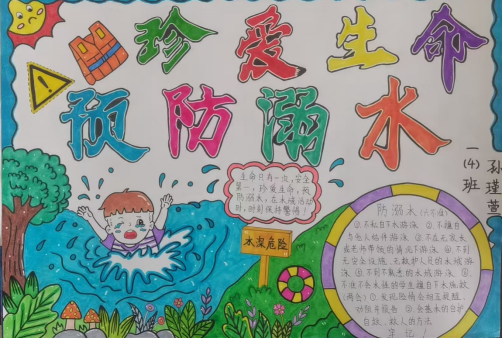 珍爱生命
预防溺水
一(4)班
孙瑾萱
生命只有一次,安全
第一,珍爱生命,预
防溺水,在水域活动
时,时刻保持警惕!
水深危险
防溺水(六不准)
①不私自下水游泳 ②不擅自
与他人结伴游泳 ③不在无家长
或老师带领的情况下游泳 ④不到
无安全设施、无救护人员的水域游
泳 ⑤不到不熟悉的水域游泳 ⑥
不准不会水性的学生擅自下水施救
(两会)①发现险情会相互提醒、
劝阻并报告 ②会基本的自护
自救、救人的方法
牢记!